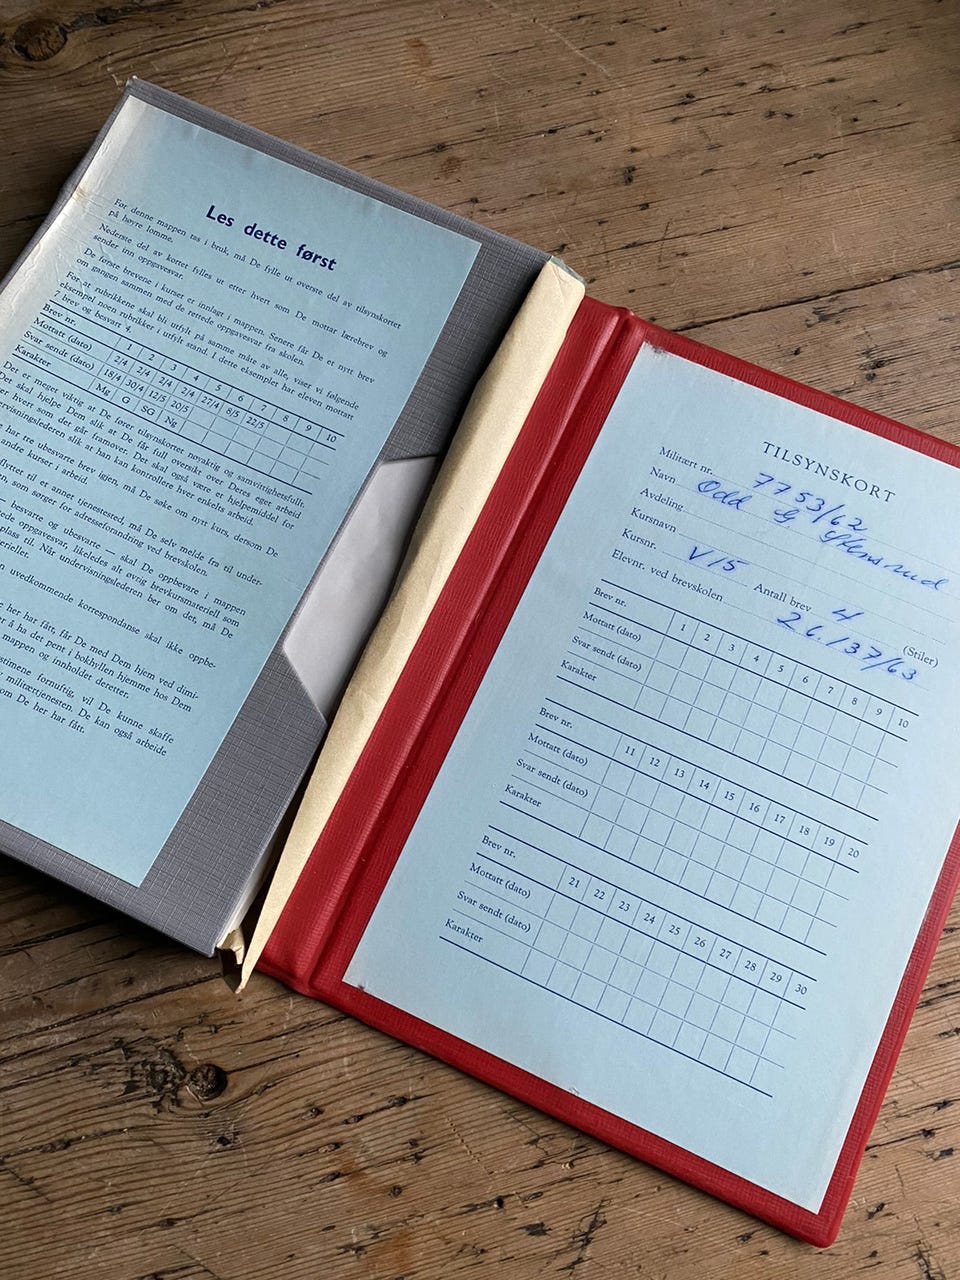 Les dette først
Før denne mappen tas i bruk, må De fylle ut øverste del av tilsynskortet
på høyre lomme.
Nederste del av kortet fylles ut etter hvert som De mottar lærebrev og
sender inn oppgavesvar.
De første brevene i kurset er innlagt i mappen. Senere får De et nytt brev
om gangen sammen med de rettede oppgavesvar fra skolen.
For at rubrikkene skal bli utfylt på samme måte av alle, viser vi følgende
eksempel noen rubrikker i utfylt stand. I dette eksemplet har eleven mottatt
7 brev og besvart 4.
Brev nr. 1 2 3 4 5 6 7 8 9 10
Mottatt (dato) 2/4 2/4 2/4 2/4 27/4 8/5 22/5
Svar sendt (dato) 18/4 30/4 12/5 20/5
Karakter Mg G SG Ng
Det er meget viktig at De fører tilsynskortet nøyaktig og samvittighetsfullt.
Det skal hjelpe Dem slik at De får full oversikt over Deres eget arbeid
hvert som det går framover. Det skal også være et hjelpemiddel for
undervisningslederen slik at han kan kontrollere hver enkelts arbeid.
har tre ubesvarte brev igjen, må De søke om nytt kurs, dersom De
andre kurser i arbeid.
flyttet til et annet tjenestested, må De selv melde fra til under-
en, som sørger for adresseforandring ved brevskolen.
besvarte og ubesvarte — skal De oppbevare i mappen
rettede oppgavesvar, likeledes alt øvrig brevkursmateriell som
plass til. Når undervisningslederen ber om det, må De
uvedkommende korrespondanse skal ikke oppbe-
her har fått, får De med Dem hjem ved dimi-
å ha det pent i bokhyllen hjemme hos Dem
mappen og innholdet deretter.
fornuftig, vil De kunne skaffe
militærtjenesten. De kan også arbeide
om De her har fått.
TILSYNSKORT
Militært nr. 7753/62
Navn Odd G
Avdeling
Kursnavn
Kursnr. V/5 Antall brev 4 (Stiler)
Elevnr. ved brevskolen 26.137/63
Brev nr. 1 2 3 4 5 6 7 8 9 10
Mottatt (dato)
Svar sendt (dato)
Karakter
Brev nr. 11 12 13 14 15 16 17 18 19 20
Mottatt (dato)
Svar sendt (dato)
Karakter
Brev nr. 21 22 23 24 25 26 27 28 29 30
Mottatt (dato)
Svar sendt (dato)
Karakter